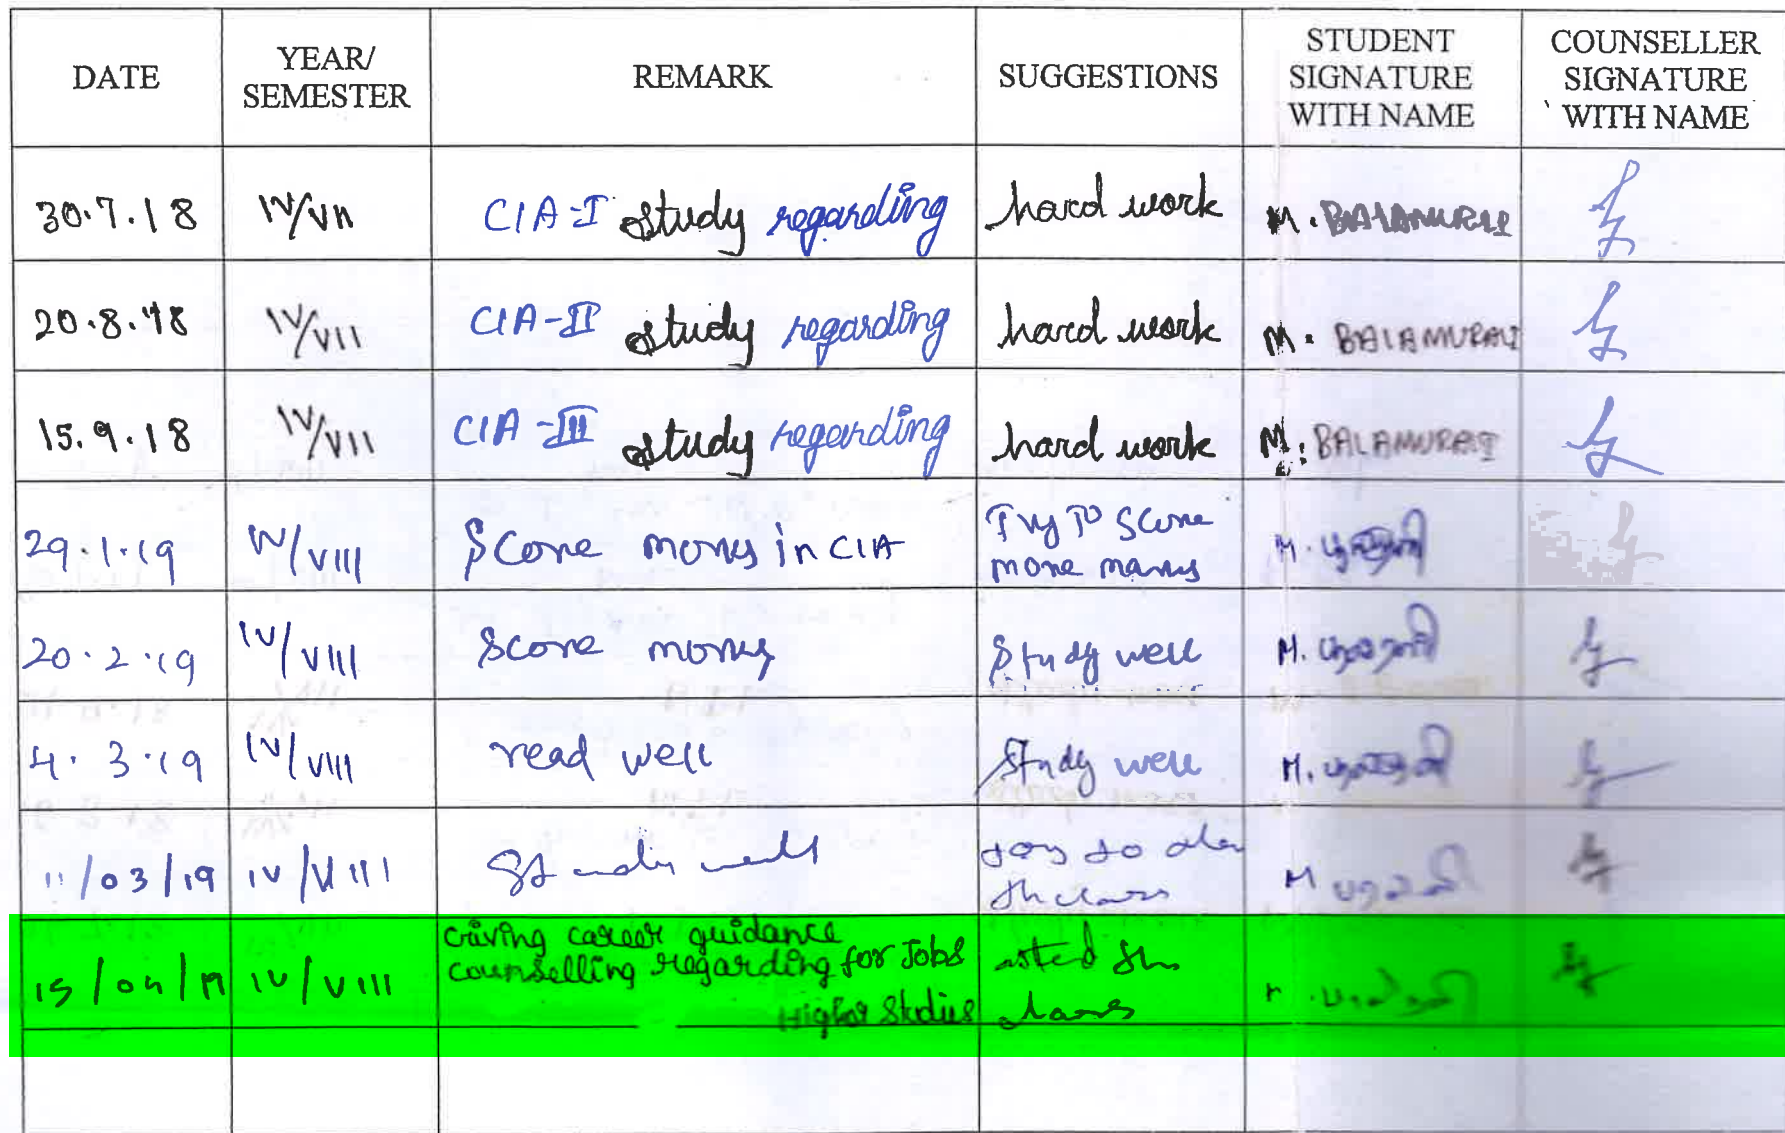 DATE
YEAR/
SEMESTER
REMARK
SUGGESTIONS
STUDENT
SIGNATURE
WITH NAME
COUNSELLER
SIGNATURE
WITH NAME
30.7.18 IV/VII CIA-I study regarding hard work M. BALAMURALI
20.8.18 IV/VII CIA-II study regarding hard work M. BALAMURALI
15.9.18 IV/VII CIA-III study regarding hard work M. BALAMURALI
29.1.19 IV/VIII Score in CIA Try To Score
more marks
M.
20.2.19 IV/VIII Score Study well M.
4.3.19 IV/VIII read well Study well M.
11/03/19 IV/VIII Study well
M
15/04/19 IV/VIII Giving career guidance
counselling regarding for Jobs
Higher Studies